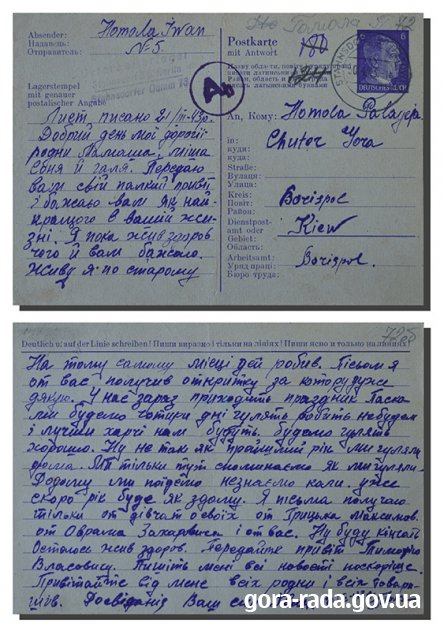 Absender: Homola Iwan
Надавець:
Отправитель: №5
Lagerstempel
mit genauer
postalischer Angabe
Postkarte
mit Antwort
6
DEUTSCHES REICH
Лист писано 21/III-43р.
Добрий день мої дорогії
родни Мамаша, міша
Євня й галя. Передаю
вам свій палкий привіт
і бажаю вам як най-
кращого в вашій жи-
зні. Я пока жив здоров
чого й вам бажаю.
Живу я по старому
An, Кому: Homola Palajeja
in: Chutor Gora
куди:
куда:
Straße:
Вулиця:
Улица:
Kreis: Borispol
Повіт:
Район:
Dienstpost-
amt oder Kiew
Gebiet:
Область:
Arbeitsamt: Borispol.
Уряд праці:
Бюро труда:
72б
Deutlich u. auf der Linie schreiben! Пиши виразно і тільки на лініях! Пиши ясно и только на линиях!
На тому самому місці дей робив. Письом я
от вас получив открытку за котору дуже
дякую. У нас зараз приходить праздник Паска
ми будемо чотири дні гулять робить не будем
і лучший харчі нам будуть. будемо гулять
хорошо. Ну не так як прошлий рік ми гуляли
дома. Ми тільки тут споминаємо як ми гуляли.
Дорому ми поїдемо незнаємо коли. уже
скоро рік буде як здому. Я письма получаю
тільки от дівчат о своїх от Грицька Максимов.
от Оврама Захаровича і от вас. Ну буду кінчать
Остаюсь жив здоров. Передайте привіт Тимофію
Власовичу. Пишіть мені всі новості поскоріше.
Привітайте від мене всіх родни і всіх товари-
шів. Досвіданія Ваш син
gora-rada.gov.ua